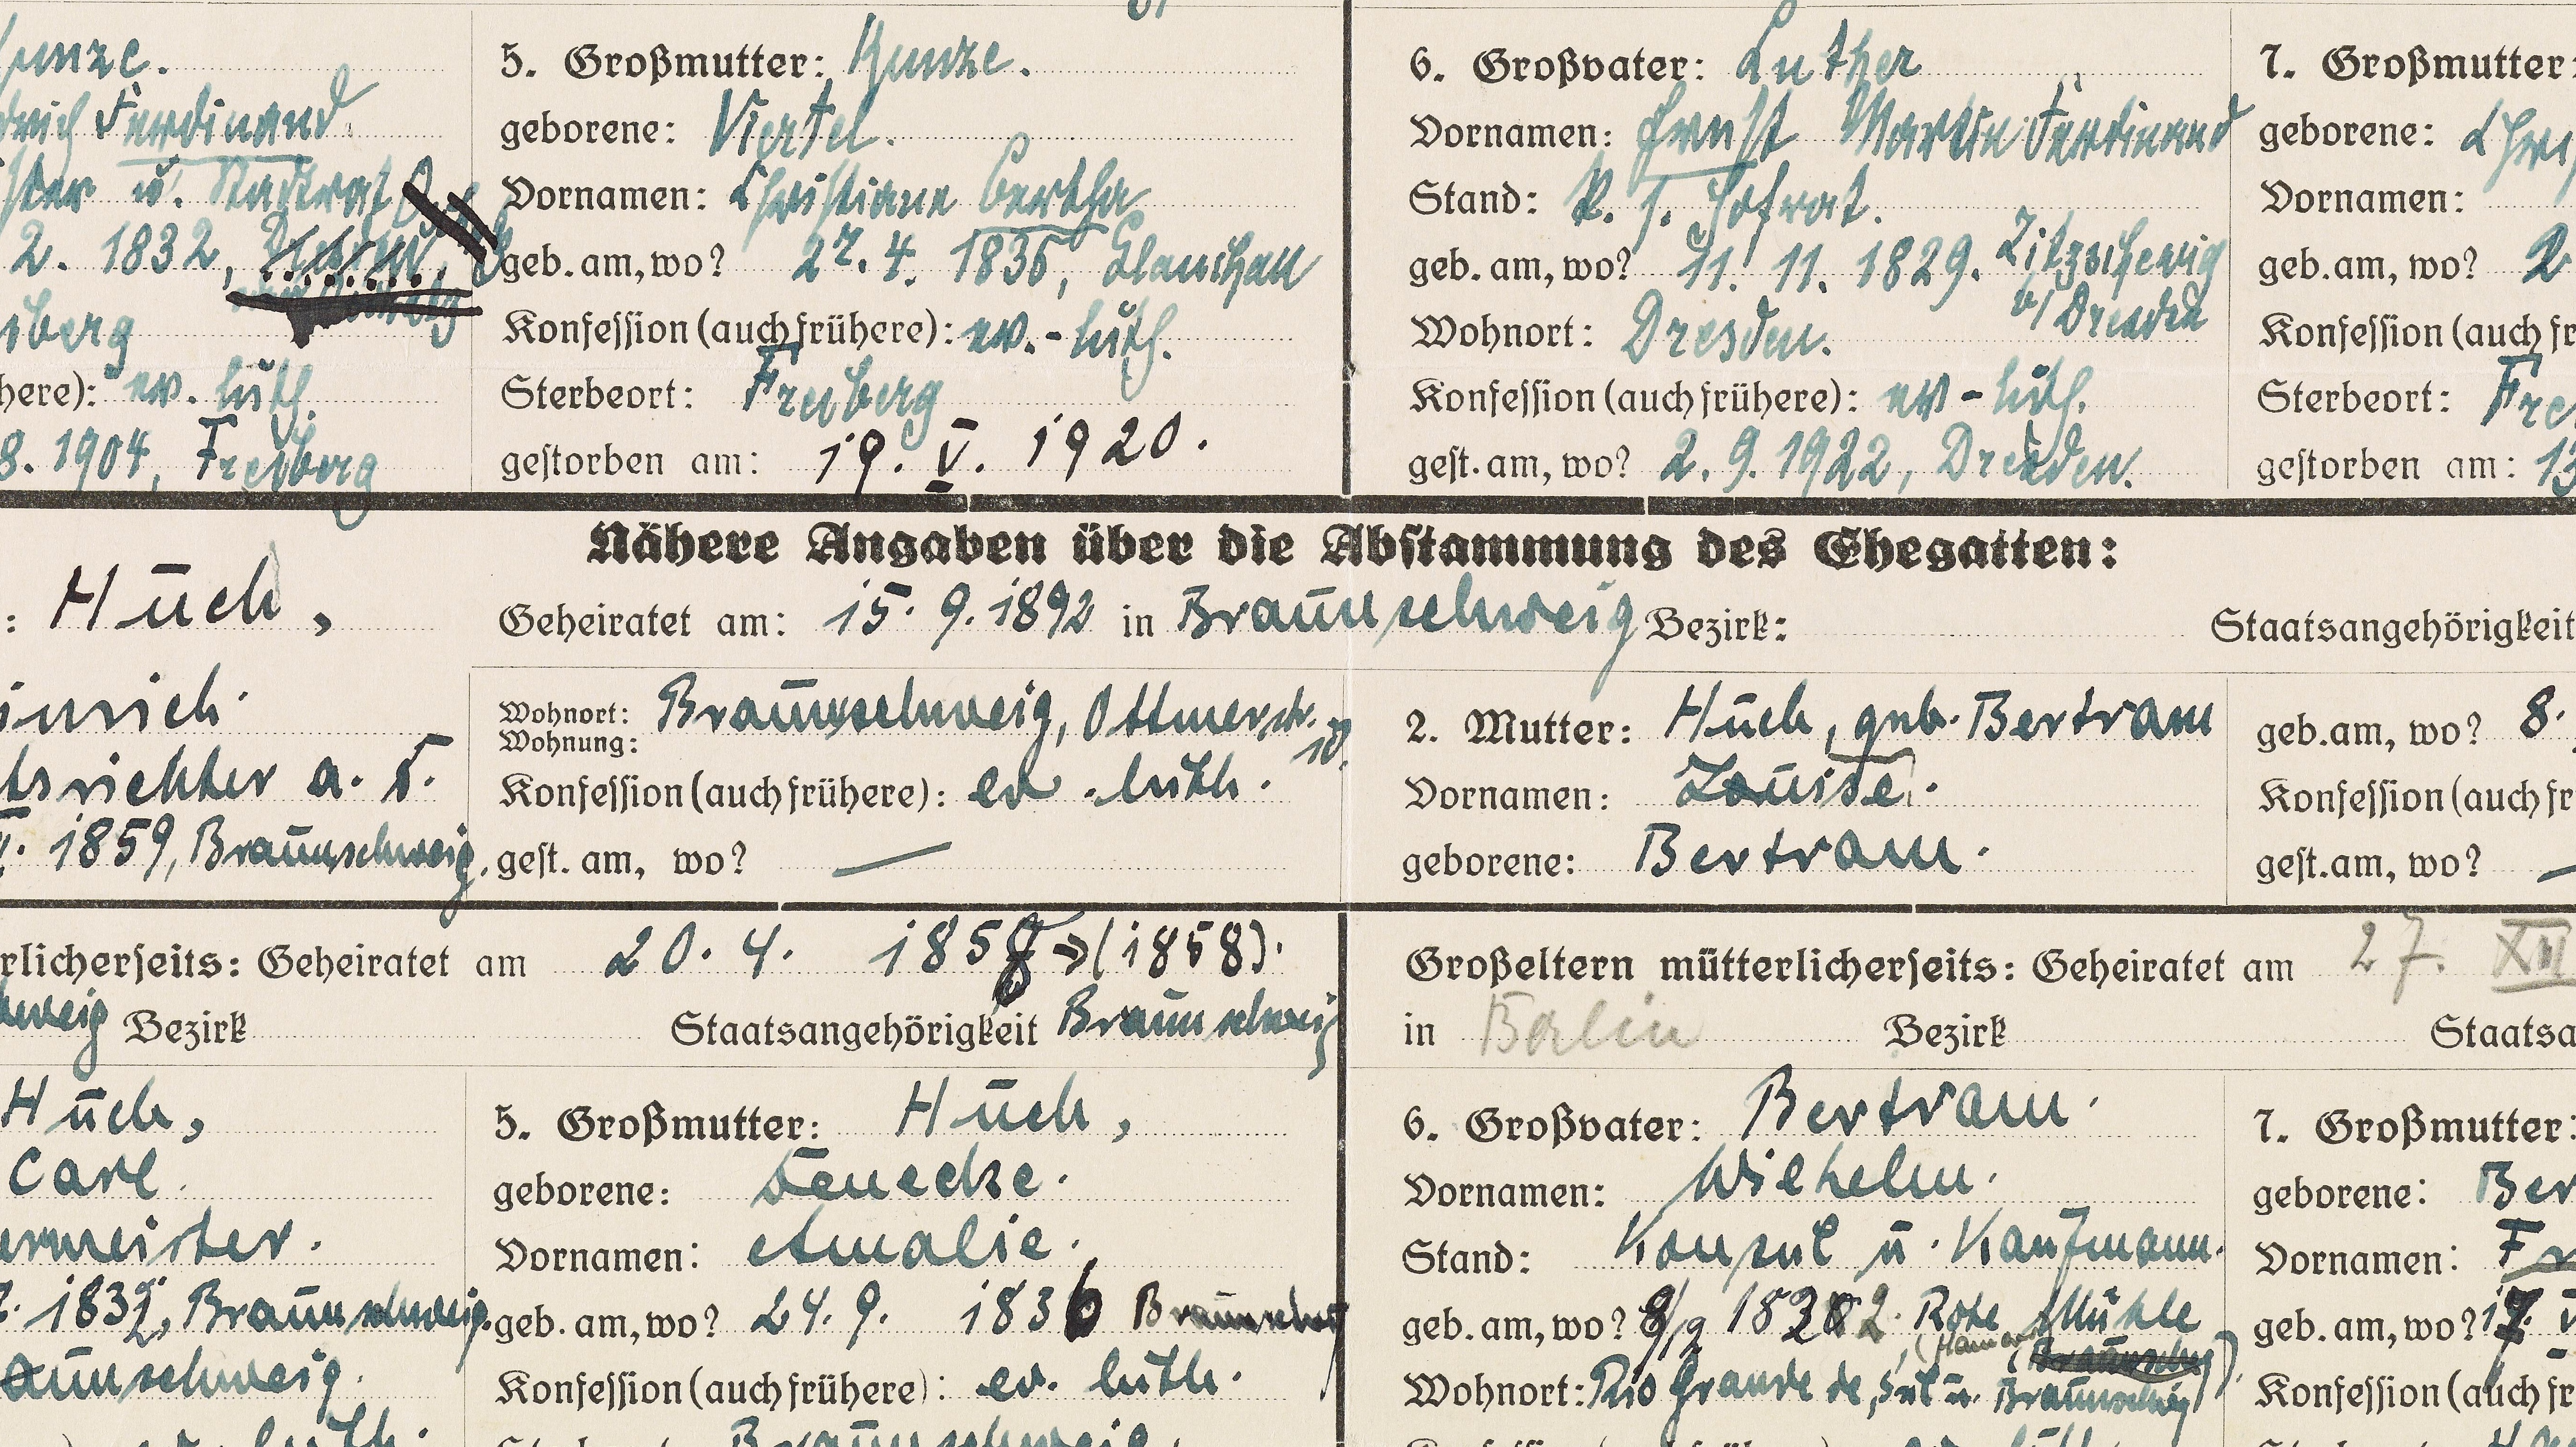 Kunze.
drich Ferdinand
ster u. Stadtrat
2. 1832,
iberg
here): ev. luth.
8. 1904, Freiberg
5. Großmutter: Kunze.
geborene: Viertel.
Vornamen: Christiane Bertha
geb. am, wo? 27. 4. 1836, Glauchau
Konfession (auch frühere): ev.-luth.
Sterbeort: Freiberg
gestorben am: 19. V. 1920.
6. Großvater: Luther
Vornamen: Ernst Martin Ferdinand
Stand: K. S. Hofrat.
geb. am, wo? 11. 11. 1829. Zitzschewig
b/ Dresden
Wohnort: Dresden.
Konfession (auch frühere): ev-luth.
gest. am, wo? 2. 9. 1922, Dresden.
7. Großmutter:
geborene:
Vornamen:
geb. am, wo?
Konfession (auch fr
Sterbeort: Fre
gestorben am: 13
Nähere Angaben über die Abstammung des Ehegatten:
: Huch,
Geheiratet am: 15. 9. 1892 in Braunschweig Bezirk:
Staatsangehörigkeit
inrich.
tsrichter a. D.
. 1859, Braunschweig.
Wohnort: Braunschweig, Ottmerstr.
Wohnung: 10.
Konfession (auch frühere): ev. luth.
gest. am, wo? —
2. Mutter: Huch, geb. Bertram
Vornamen: Louise.
geborene: Bertram.
geb. am, wo? 8.
Konfession (auch fr
gest. am, wo? —
rlicherseits: Geheiratet am 20. 4. 1858 (1858).
hweig Bezirk Staatsangehörigkeit Braunschweig
Großeltern mütterlicherseits: Geheiratet am 27. XII
in Berlin Bezirk Staatsa
Huch,
Carl.
ermeister.
. 1832, Braunschweig.
aunschweig.
ev. luth.
5. Großmutter: Huch,
geborene: Denecke.
Vornamen: Amalie.
geb. am, wo? 24. 9. 1836 Braunschw
Konfession (auch frühere): ev. luth.
Braunschweig.
6. Großvater: Bertram.
Vornamen: Wilhelm.
Stand: Konsul u. Kaufmann.
geb. am, wo? 8/9 1822. Rote Mühle
Wohnort: Rio Grande de Sul u. Braunschweig
7. Großmutter:
geborene: Ber
Vornamen: Fr
geb. am, wo? 17.
Konfession (auch fr